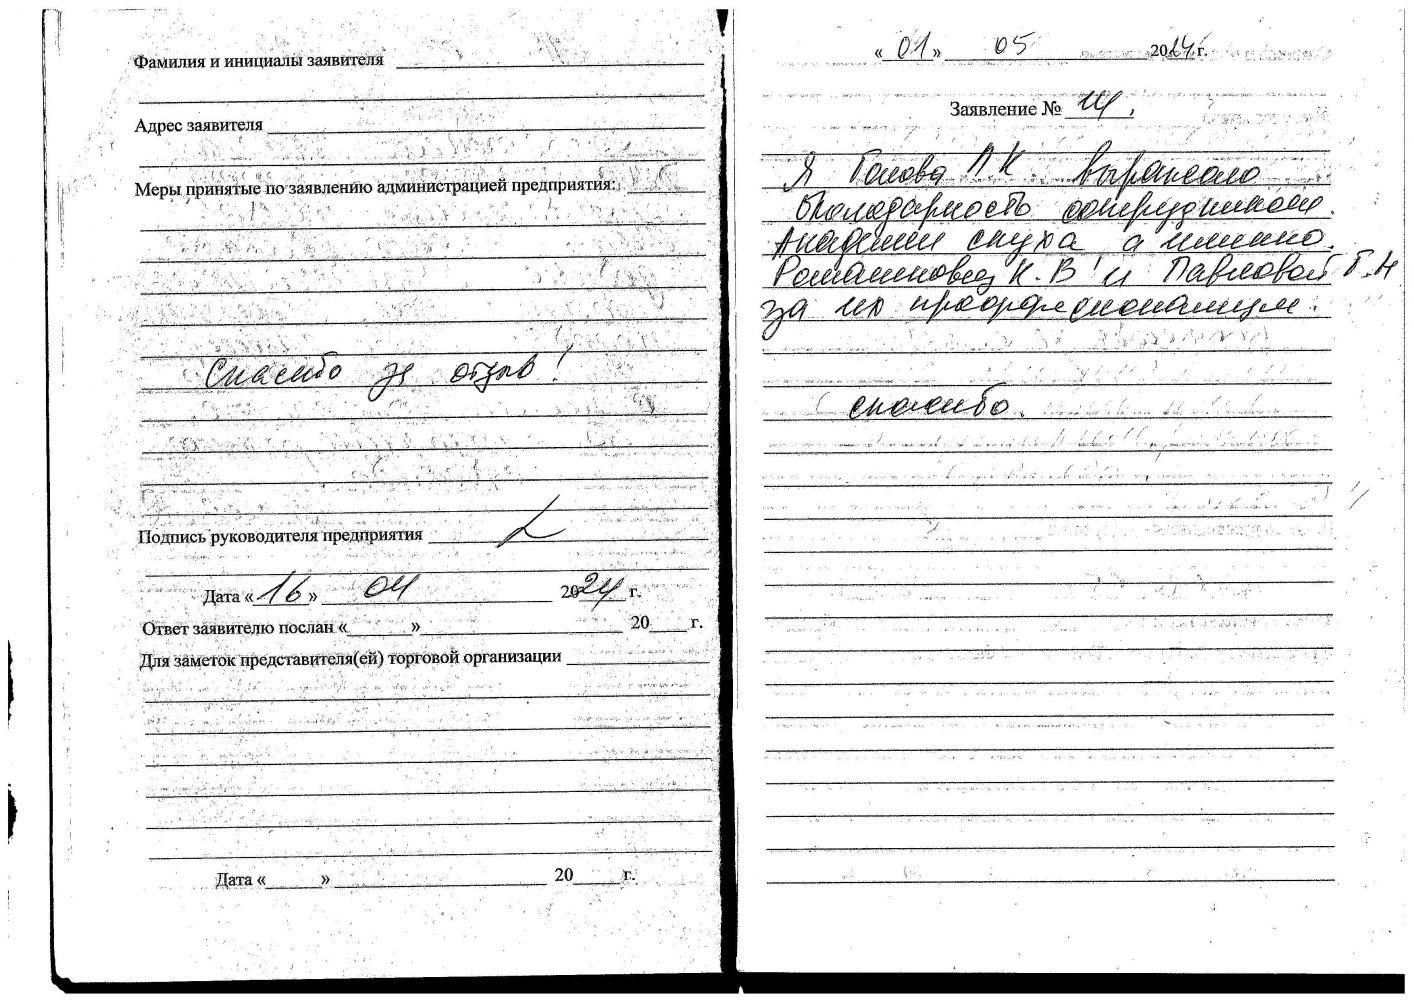 Фамилия и инициалы заявителя
Адрес заявителя
Меры принятые по заявлению администрацией предприятия:
Спасибо за отзыв!
Подпись руководителя предприятия
Дата «16» 04 2024 г.
Ответ заявителю послан «   » 20 г.
Для заметок представителя(ей) торговой организации
Дата «   » 20 г.
«01» 05 2024 г.
Заявление №
Я Голова Л К выражаю
благодарность сотрудникам.
Академии слуха а именно.
К.В и Павловой Г.Н
за их профессионализм.
спасибо.